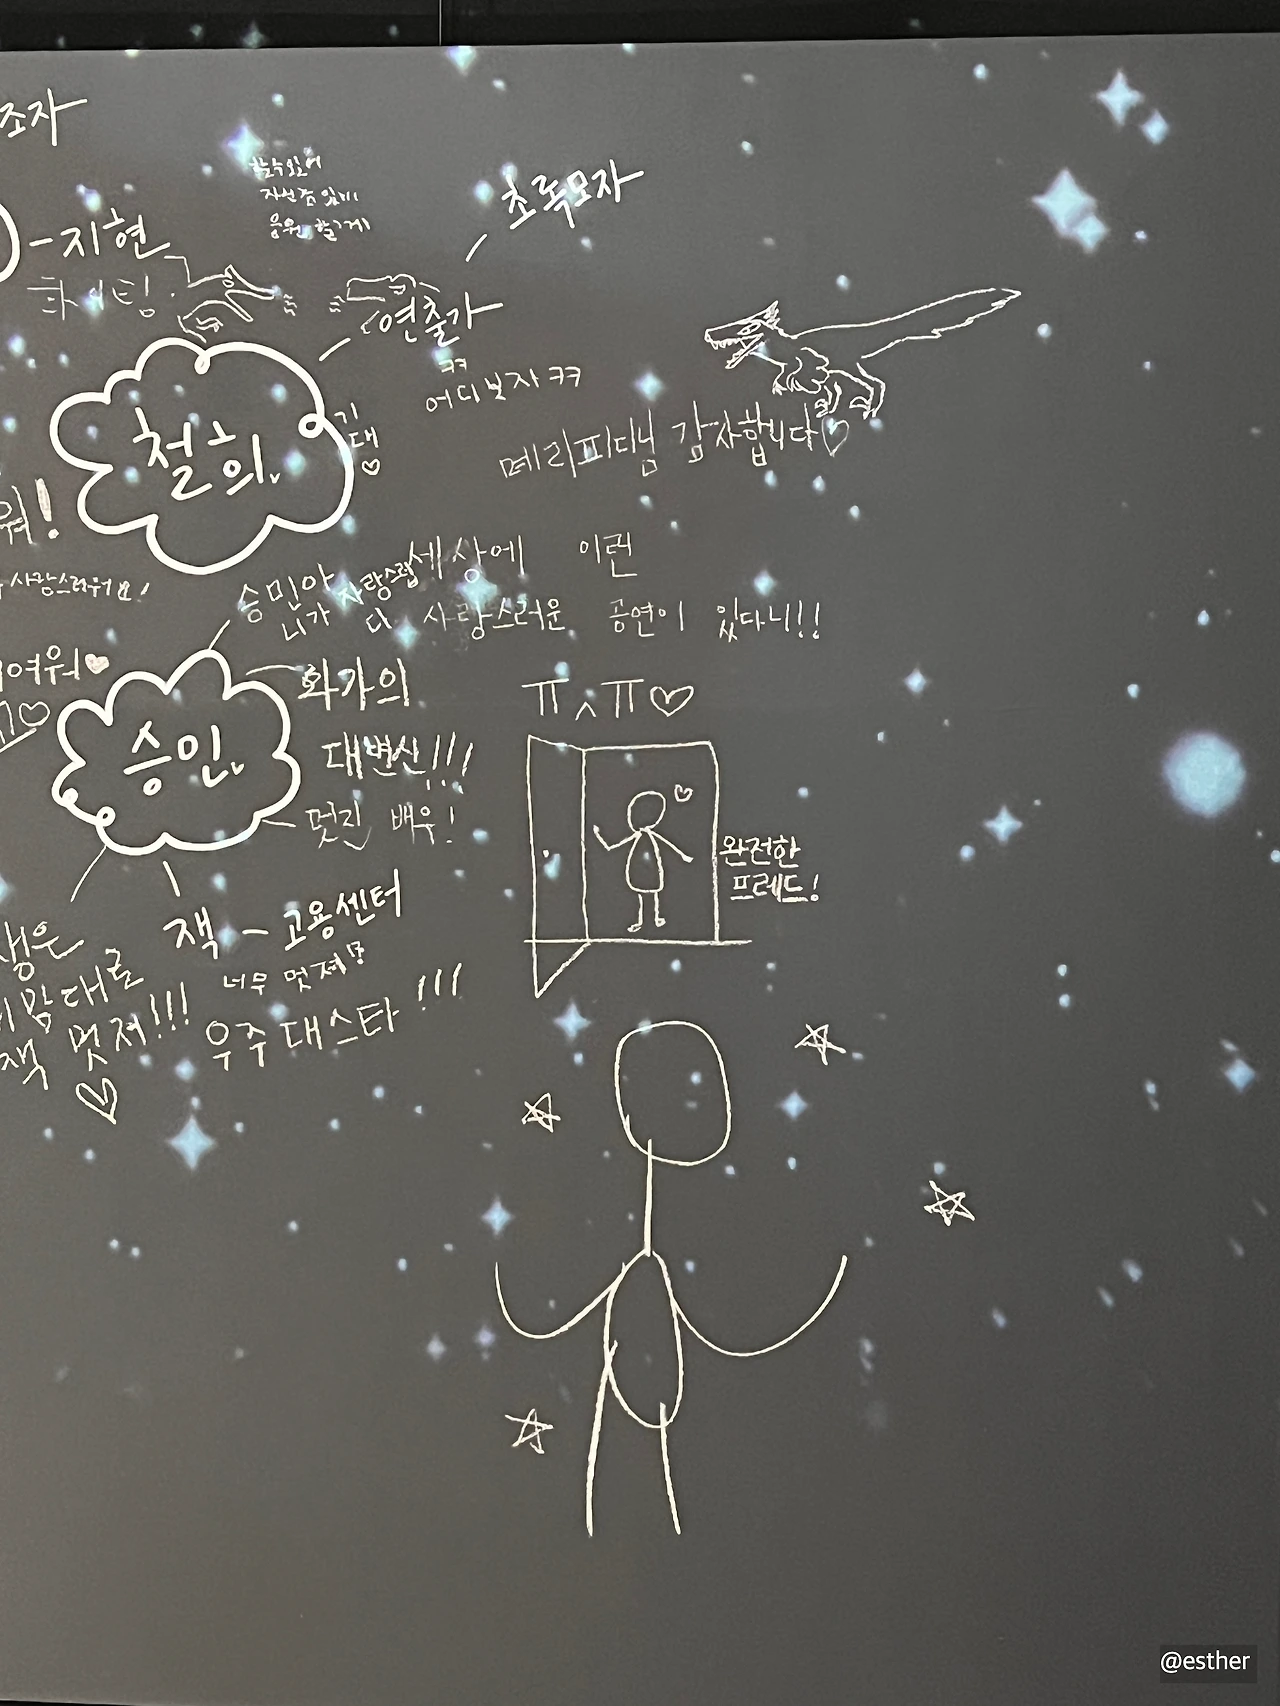 초자
할 수 있어
자신감 있게
응원할게
초록모자
- 지현
화이팅!
연출가
ㅋㅋ
어디보자 ㅋㅋ
철희
기대♡
메리피디님 감사합니다♡
워!
사랑스러워요!
승민아
니가 사랑스럽다
세상에 이런
사랑스러운 공연이 있다니!!
여워♥
화가의
대변신!!!
ㅠ^ㅠ♡
승민
멋진 배우!
완전한
프레드!
잭 - 고용센터
너무 멋져!!
맘대로
잭 멋져!!!
우주대스타!!!
@esther